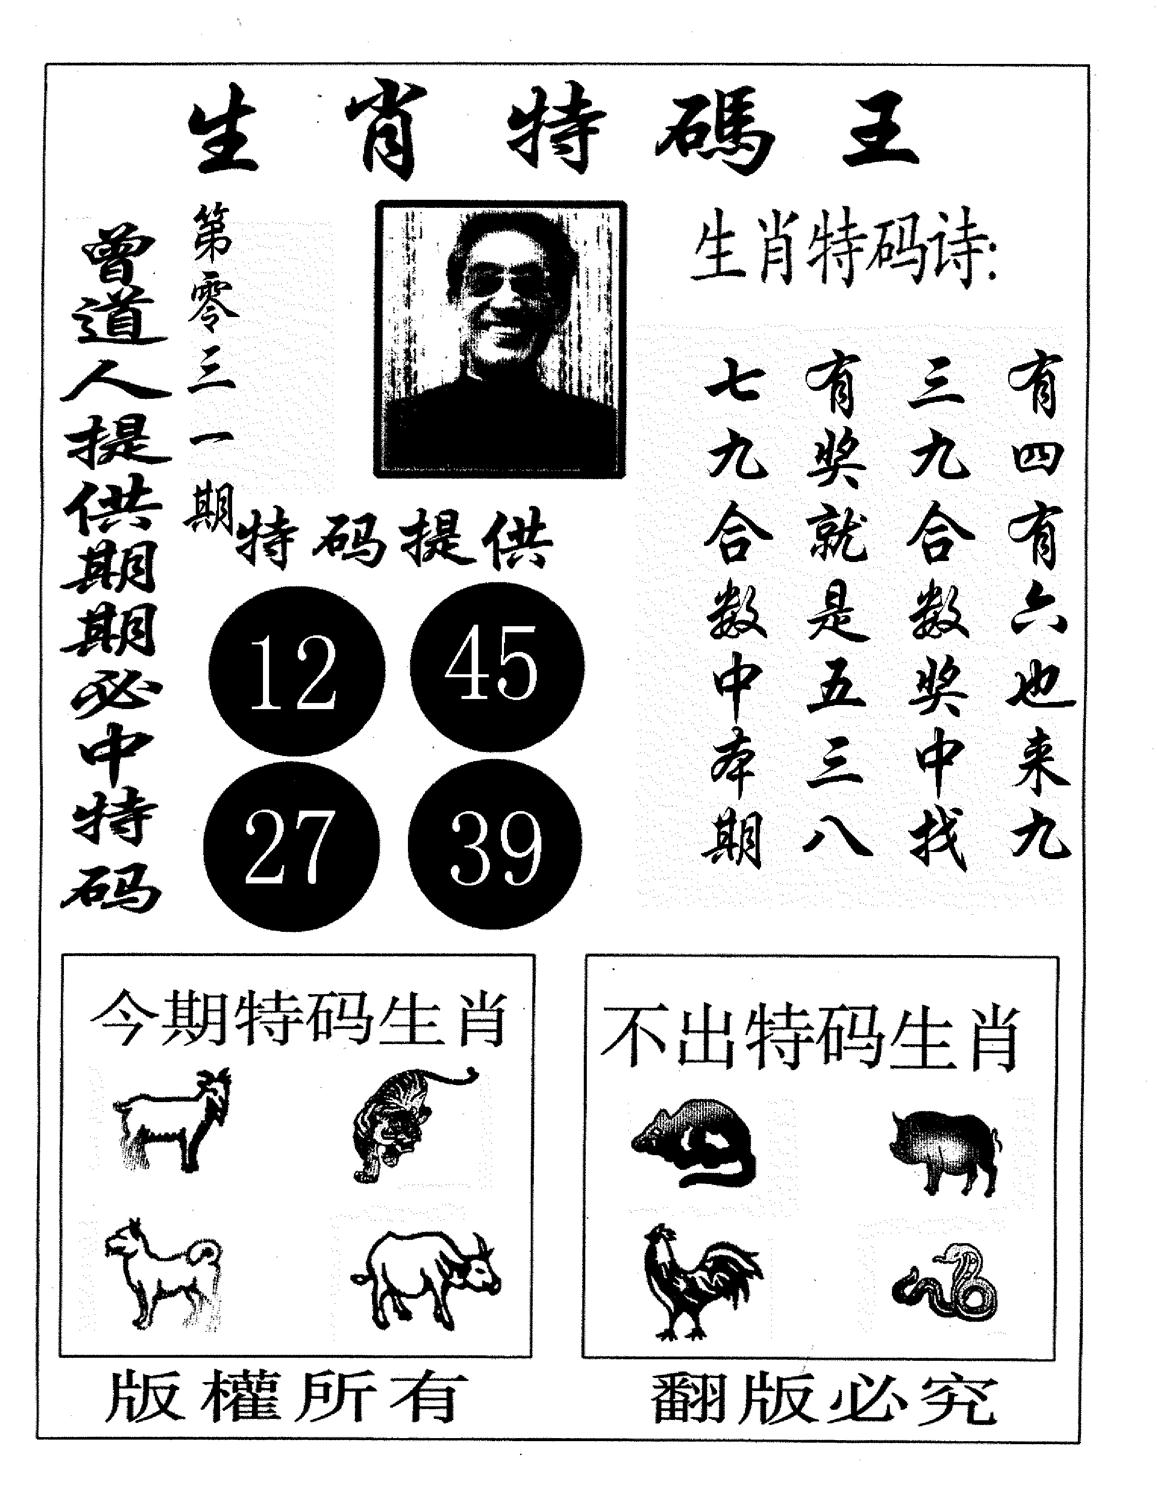 生肖特碼王
曾道人提供期期必中特码
第零三一期
生肖特码诗:
有四有六也来九
三九合数奖中找
有奖就是五三八
七九合数中本期
特码提供
12
45
27
39
今期特码生肖
不出特码生肖
版權所有
翻版必究